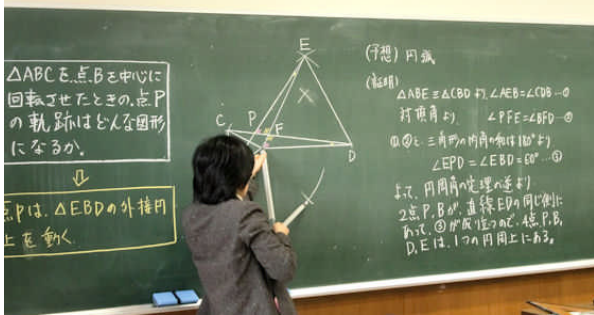 △ABCを点Bを中心に
回転させたときの、点P
の軌跡はどんな図形
になるか。
点Pは、△EBDの外接円
上を動く
E
C
P
F
D
(予想) 円弧
(証明)
△ABE≡△CBDより、∠AEB=∠CDB…①
対頂角より、∠PFE=∠BFD…②
①,②と、三角形の内角の和は180°より
∠EPD=∠EBD=60°…③
よって、円周角の定理の逆より
2点P,Bが、直線EDの同じ側に
あって、③が成り立つので、4点P,B,
D,Eは、1つの円周上にある。